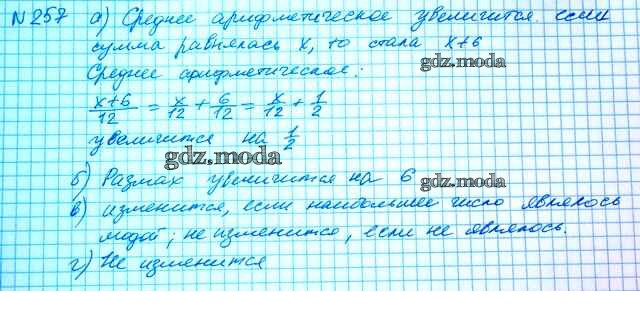 №257 а) Среднее арифметическое увеличится. если
сумма равнялась x, то стала x+6
gdz.moda
Среднее арифметическое:
x+6/12 = x/12 + 6/12 = x/12 + 1/2
увеличится на 1/2
gdz.moda
б) Размах увеличится на 6
gdz.moda
в) изменится, если наибольшее число являлось
модой; не изменится, если не являлось.
г) Не изменится